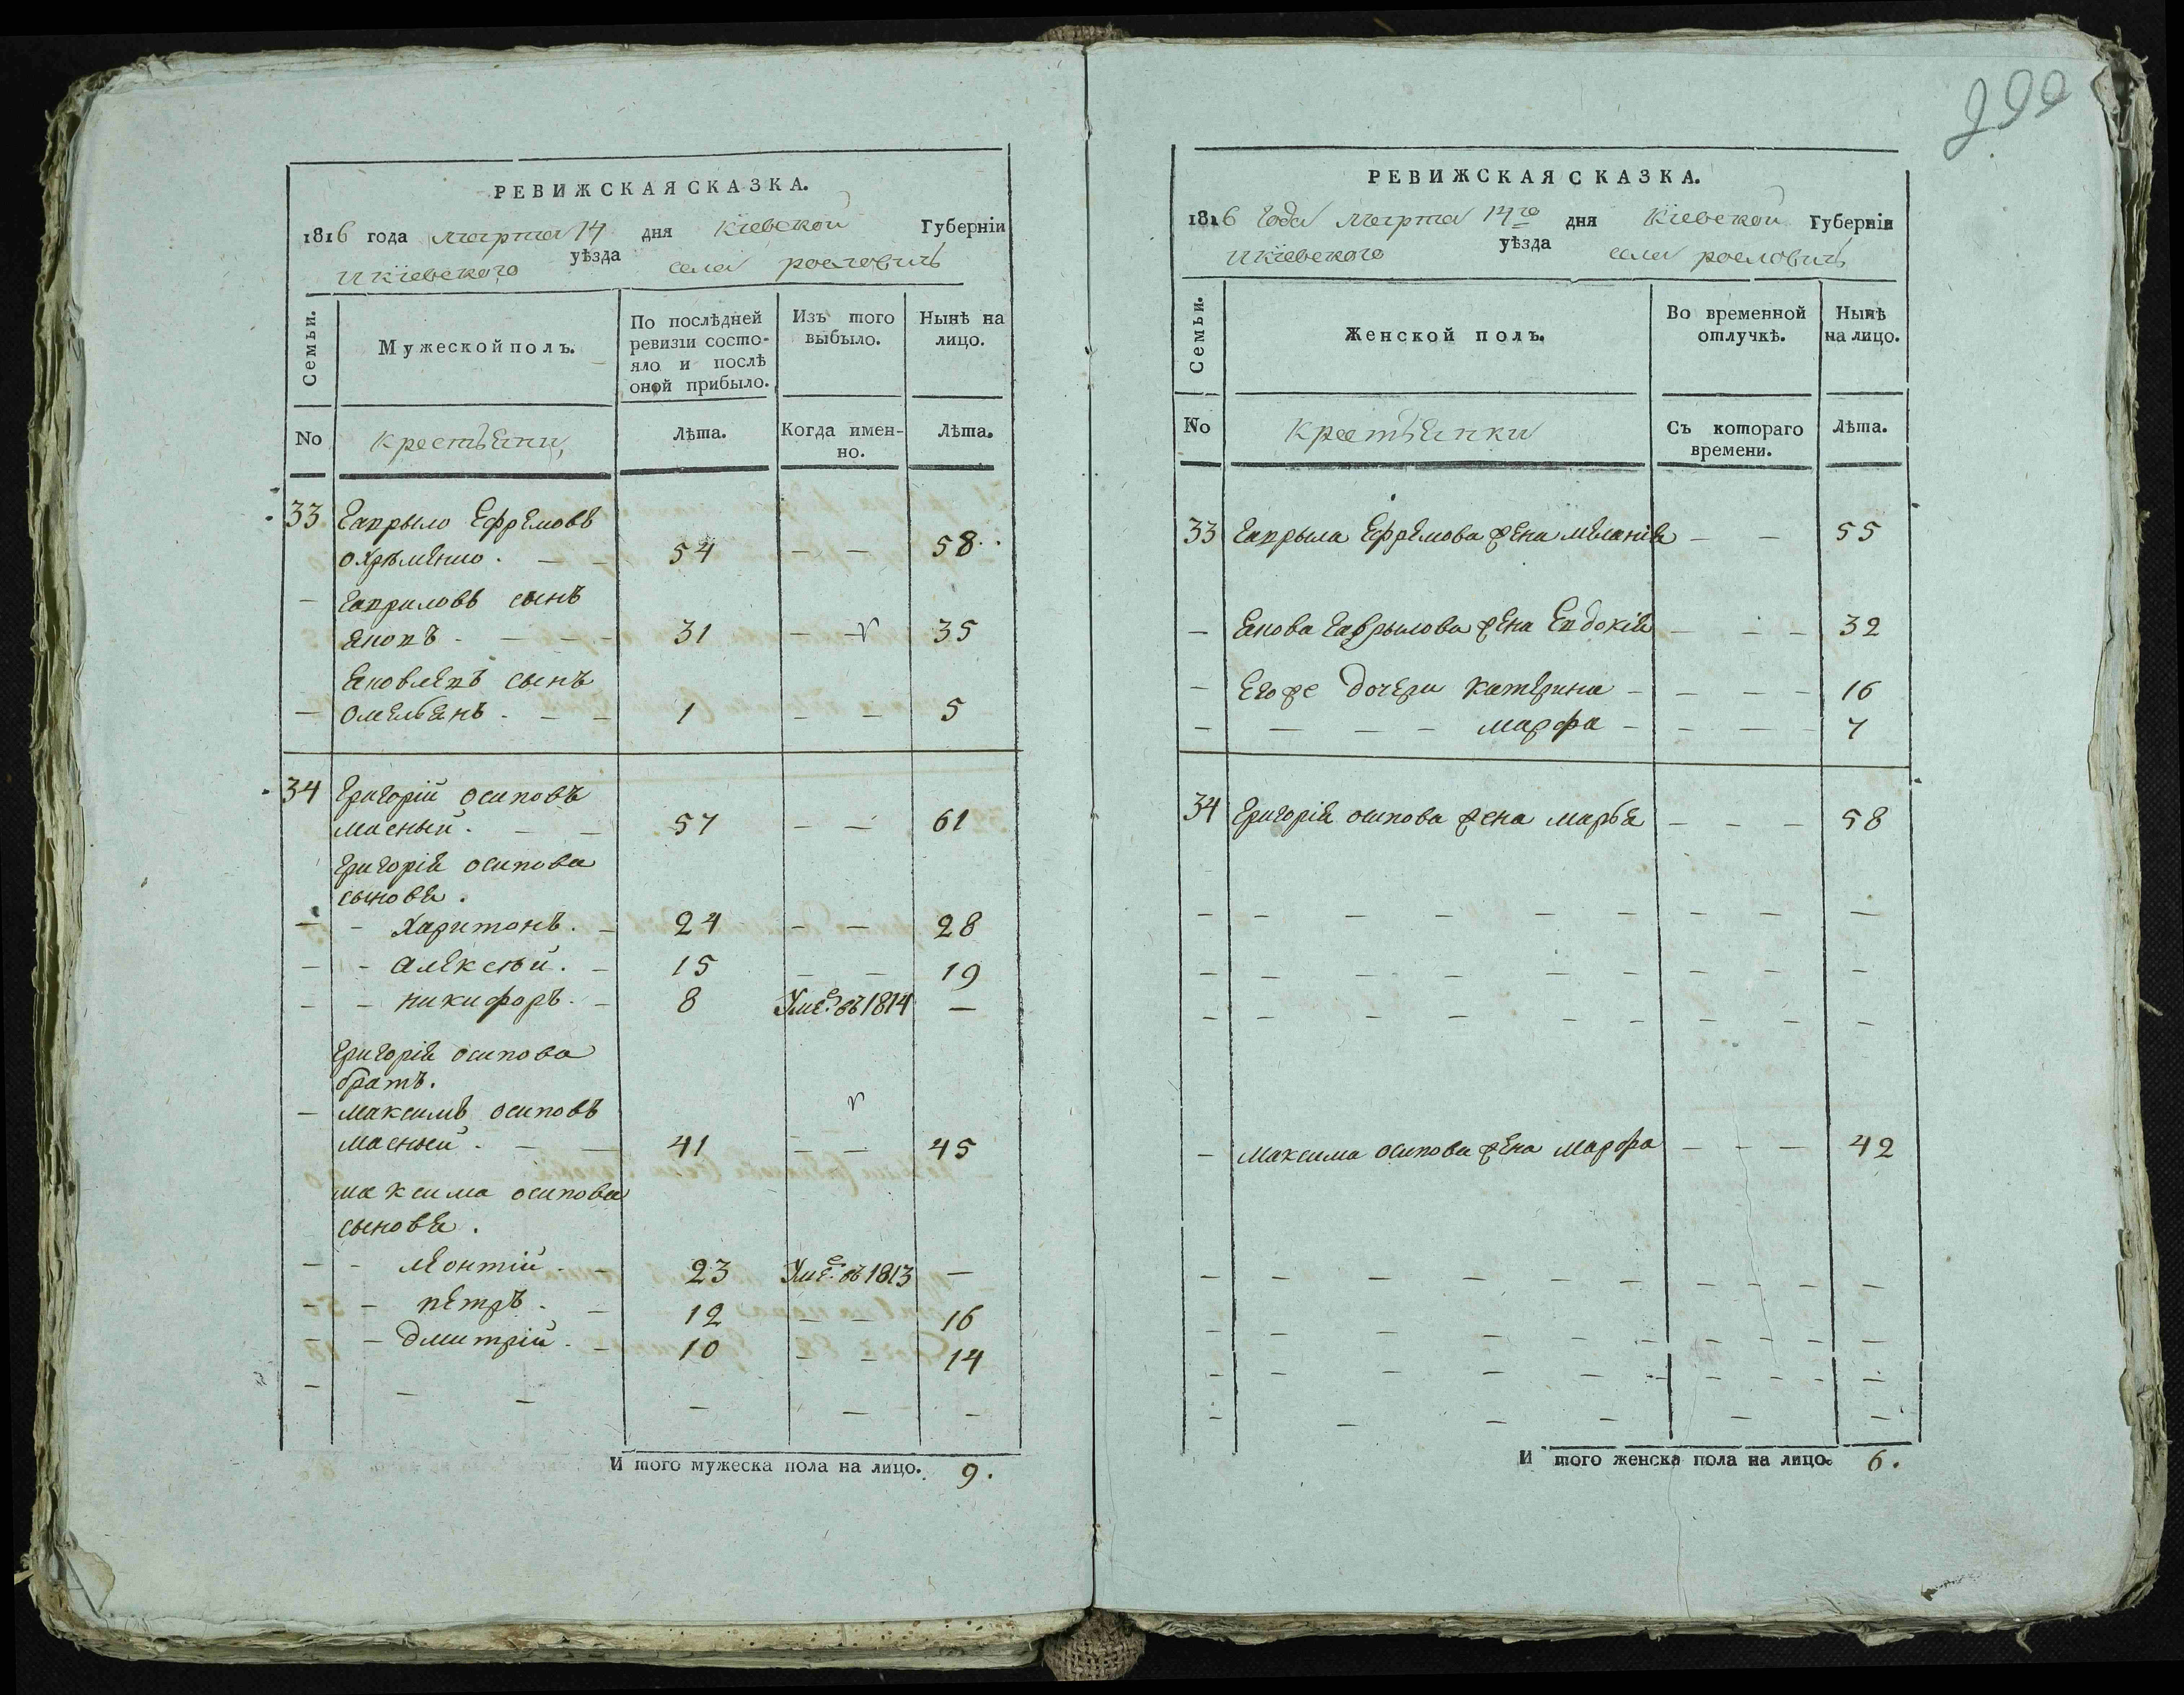 299
РЕВИЖСКАЯ СКАЗКА.
1816 года марта 14 дня Кіевской Губерніи
и Кіевского уѣзда села рословичь
Семьи.
Мужеской полъ.
По послѣдней ревизіи состо-
яло и послѣ
оной прибыло.
Изъ того
выбыло.
Нынѣ на
лицо.
No
крестьяни
Лѣта.
Когда имен-
но.
Лѣта.
33 Гаврыло Ефремовъ
охрѣменко. — — 54 — — 58
— Гавриловъ сынъ
Яковъ — — — 31 — — 35
Яковлевъ сынъ
— Омельянъ — — 1 — — 5
34 Григорій осиповъ
масный — — 57 — — 61
Григорія осипова
сыновя.
— — Харитонъ. — 24 — — 28
— — алексѣй. — 15 — — 19
— — никифоръ. — 8 Уме: въ 1814 —
Григорія осипова
братъ.
— максимъ осиповъ
масный — — 41 — — 45
максима осипова
сыновя.
— — леонтій — 23 Уме: въ 1813 —
— — петръ — — 12 — — 16
— — дмитрій — 10 — — 14
— — — — — —
И того мужеска пола на лицо. 9.
РЕВИЖСКАЯ СКАЗКА.
1816 года марта 14го дня Кіевской Губерніи
и Кіевского уѣзда села рословичь
Семьи.
Женской полъ.
Во временной
отлучкѣ.
Нынѣ
на лицо.
No
крестьянки
Съ котораго
времени.
Лѣта.
33 Гаврыла Ефремова жена меланія — — 55
— Якова Гаврылова жена Евдокія — — — 32
— Егоже дочери катерина — — — — 16
— — — — марфа — — — — 7
34 Григорія осипова жена марья — — — 58
— — — — — — — — —
— — — — — — — — —
— — — — — — — — —
— максима осипова жена марфа — — — 42
— — — — — — — — — —
— — — — — — — — — —
— — — — — — — — — —
— — — — — —
И того женска пола на лицо. 6.